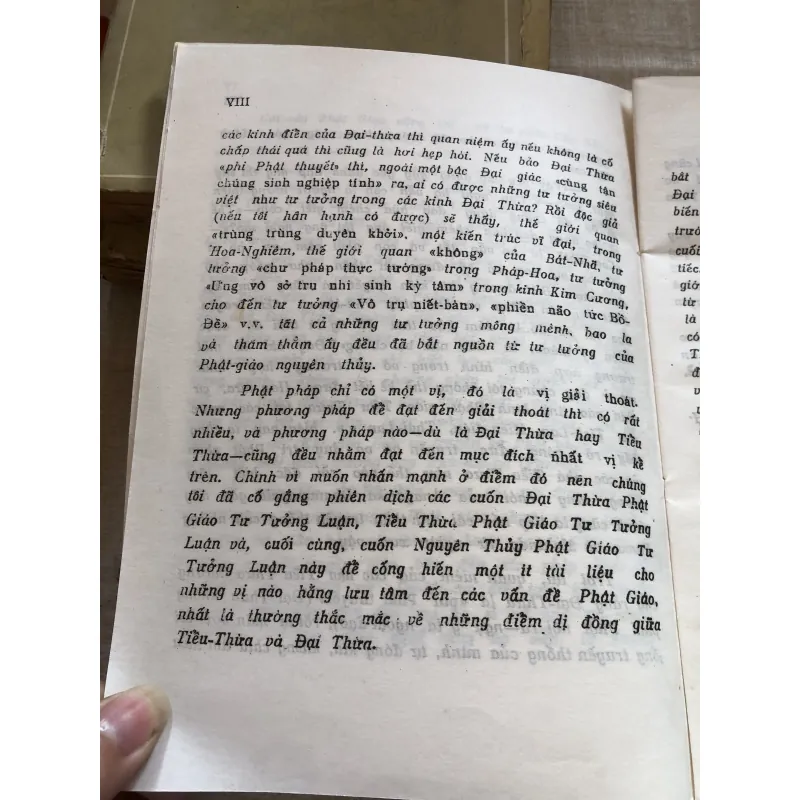 VIII
các kinh điển của Đại-thừa thì quan niệm ấy nếu không là cố
chấp thái quá thì cũng là hơi hẹp hòi. Nếu bảo Đại Thừa
«phi Phật thuyết» thì, ngoài một bậc Đại giác «cùng tận
chúng sinh nghiệp tính» ra, ai có được những tư tưởng siêu
việt như tư tưởng trong các kinh Đại Thừa? Rồi độc giả
(nếu tôi hân hạnh có được) sẽ thấy, thế giới quan
«trùng trùng duyên khởi», một kiến trúc vĩ đại, trong
Hoa-Nghiêm, thế giới quan «không» của Bát-Nhã, tư
tưởng «chư pháp thực tướng» trong Pháp-Hoa, tư tưởng
«Ưng vô sở trụ nhi sinh kỳ tâm» trong kinh Kim Cương,
cho đến tư tưởng «Vô trụ niết-bàn», «phiền não tức Bồ-
Đề» v.v. tất cả những tư tưởng mông mênh, bao la
và thăm thẳm ấy đều đã bắt nguồn từ tư tưởng của
Phật-giáo nguyên thủy.
Phật pháp chỉ có một vị, đó là vị giải thoát.
Nhưng phương pháp để đạt đến giải thoát thì có rất
nhiều, và phương pháp nào—dù là Đại Thừa hay Tiểu
Thừa—cũng đều nhằm đạt đến mục đích nhất vị kể
trên. Chính vì muốn nhấn mạnh ở điểm đó nên chúng
tôi đã cố gắng phiên dịch các cuốn Đại Thừa Phật
Giáo Tư Tưởng Luận, Tiểu Thừa Phật Giáo Tư Tưởng
Luận và, cuối cùng, cuốn Nguyên Thủy Phật Giáo Tư
Tưởng Luận này để cống hiến một ít tài liệu cho
những vị nào hằng lưu tâm đến các vấn đề Phật Giáo,
nhất là thường thắc mắc về những điểm dị đồng giữa
Tiểu-Thừa và Đại Thừa.
bất
Đại
biến
trướ
cuối
tiếc
giớ
từ
là
c
T
đ
v
n